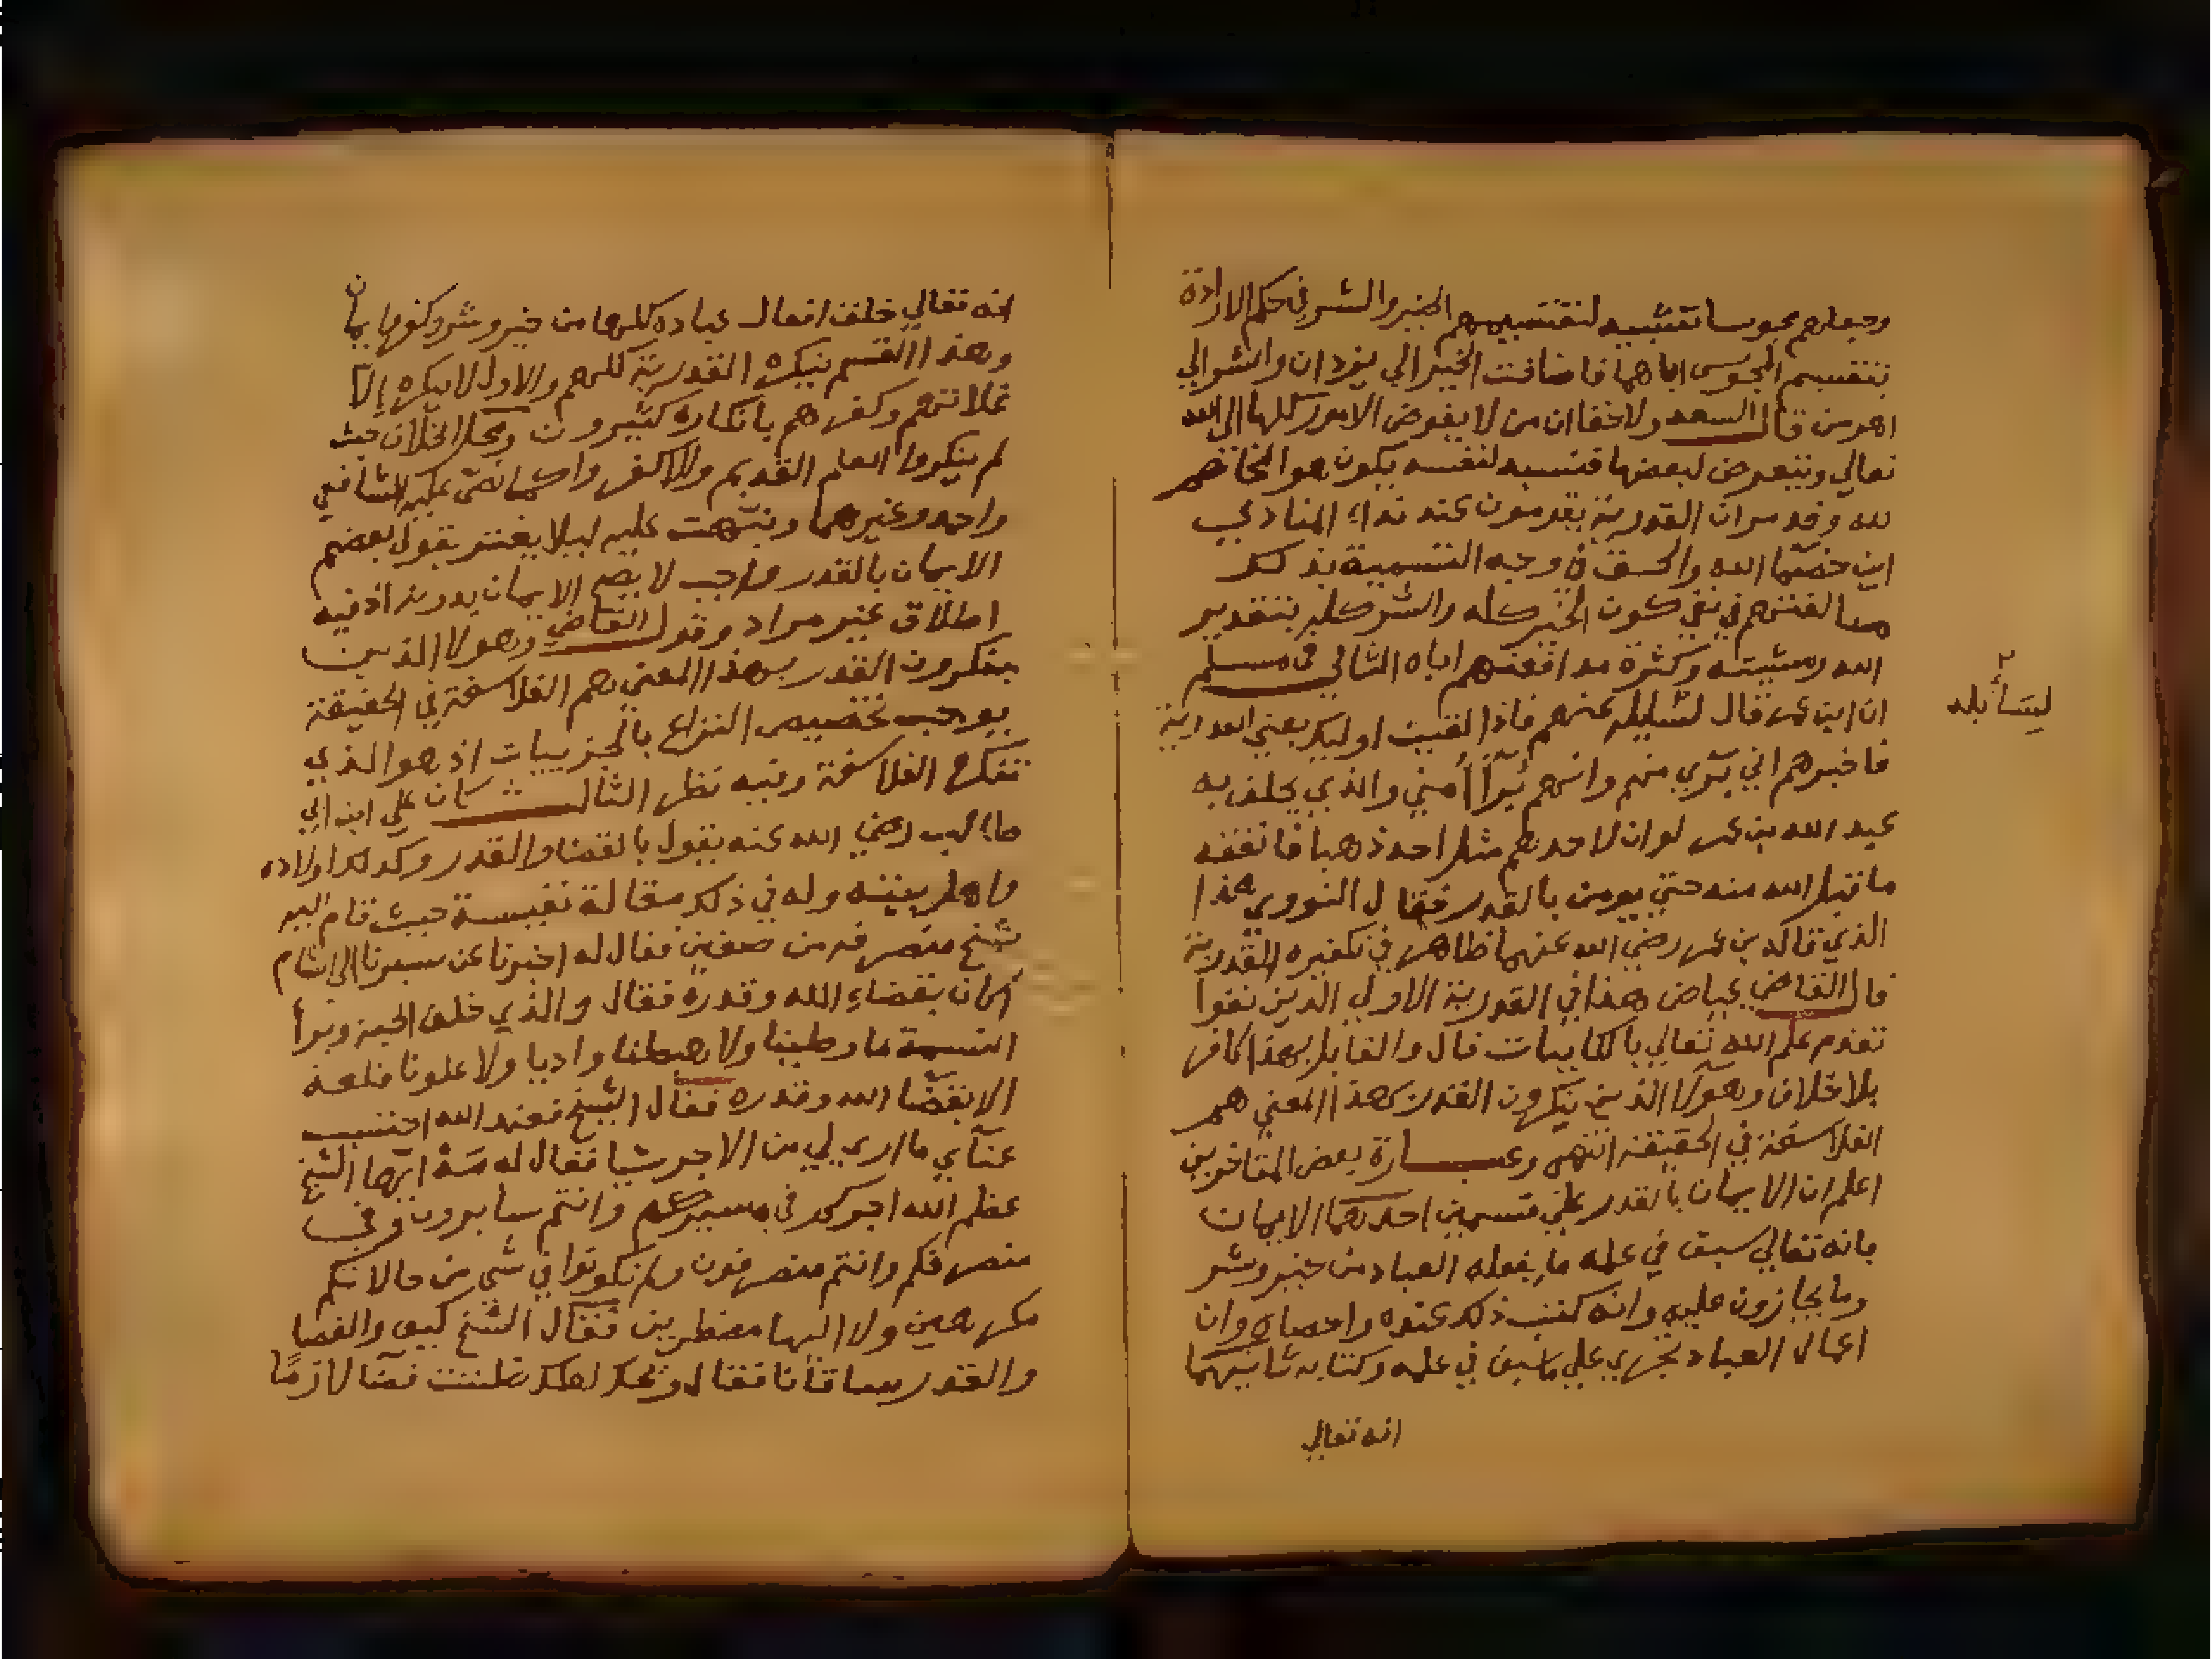 وجعلهم مجوسا تشبيه لتقسيمهم الخير والشر في حكم الارادة
بتقسيم المجوس اياهما فاضافت الخير الي يزدان والشر الي
اهرمن قال السعد ولا خفا ان من لا يفوض الامور كلها الى الله
تعالي ويتعرض لبعضها فينسبه لنفسه يكون هو المخاصم
لله وقد مر ان القدرية يقومون عند نداء المنادي
اين خصما الله والحق في وجه التسمية بذلك
مبالغتهم في نفي كون الخير كله والشر كله بتقدير
الله ومشيته وكثرة مدافعتهم اياه الثاني في مسلم
ان ابن عمر قال لسايله عنهم فاذا لقيت اوليك يعني القدرية
فاخبرهم اني بري منهم وانهم برآا مني والذي يحلف به
عبد الله بن عمر لو ان لاحدهم مثل احد ذهبا فانفقه
ما قبل الله منه حتي يومن بالقدر فقال النووي هذا
الذي قاله بن عمر رضي الله عنهما ظاهر في تكفيره القدرية
قال القاضي عياض هذا في القدرية الاولي الذين نفوا
تقدم علم الله تعالي بالكاينات قال والقايل بهذا كافر
بلا خلاف وهولا الذين ينكرون القدر بهذا المعني هم
الفلاسفة في الحقيقة انتهى وعبارة بعض المتاخرين
اعلم ان الايمان بالقدر علي قسمين احدهما الايمان
بانه تعالي سبق في علمه ما يفعله العباد من خير وشر
وما يجازون عليه وانه كتب ذلك عنده واحصاه وان
اعمال العباد تجري علي ما سبق في علمه وكتابه ثانيهما
انه تعالي
لسايله
انه تعالي خلق افعال عباده كلها من خير وشر وكفر وايمان
وهذا القسم ينكره القدرية كلهم والاول لا ينكره الا
غلاتهم وكفرهم بانكاره كثيرون ومحل الخلاف حيث
لم ينكروا العلم القديم والا كفروا كما نص عليه الشافعي
واحمد وغيرهما ونبهت عليه ليلا يغتر بقول بعضهم
الايمان بالقدر واجب لا يصح الايمان بدونه اذ فيه
اطلاق غير مراد وقول القاضي وهولا الذين
ينكرون القدر بهذا المعني هم الفلاسفة في الحقيقة
يوجب تخصيص النزاع بالجزييات اذ هو الذي
تنكره الفلاسفة وفيه نظر الثالث كان علي ابن ابي
طالب رضي الله عنه يقول بالقضا والقدر وكذلك اولاده
واهل بيته وله في ذلك مقالة نفيسة حيث قام اليه
شيخ منصرفه من صفين فقال له اخبرنا عن سيرنا الى الشام
أكان بقضاء الله وقدره فقال والذي خلق الحبة وبرأ
النسمة ما وطينا ولا هبطنا واديا ولا علونا قلعة
الا بقضا الله وقدره فقال الشيخ فعند الله احتسب
عنآي ما اري لي من الاجر شيا فقال له مه ايها الشيخ
عظم الله اجركم في مسيركم وانتم سايرون وفي
منصرفكم وانتم منصرفون ولم تكونوا في شي من حالاتكم
مكرهين ولا اليها مضطرين فقال الشيخ كيف والقضا
والقدر ساقانا فقال ويحك لعلك ظننت قضا لازمًا